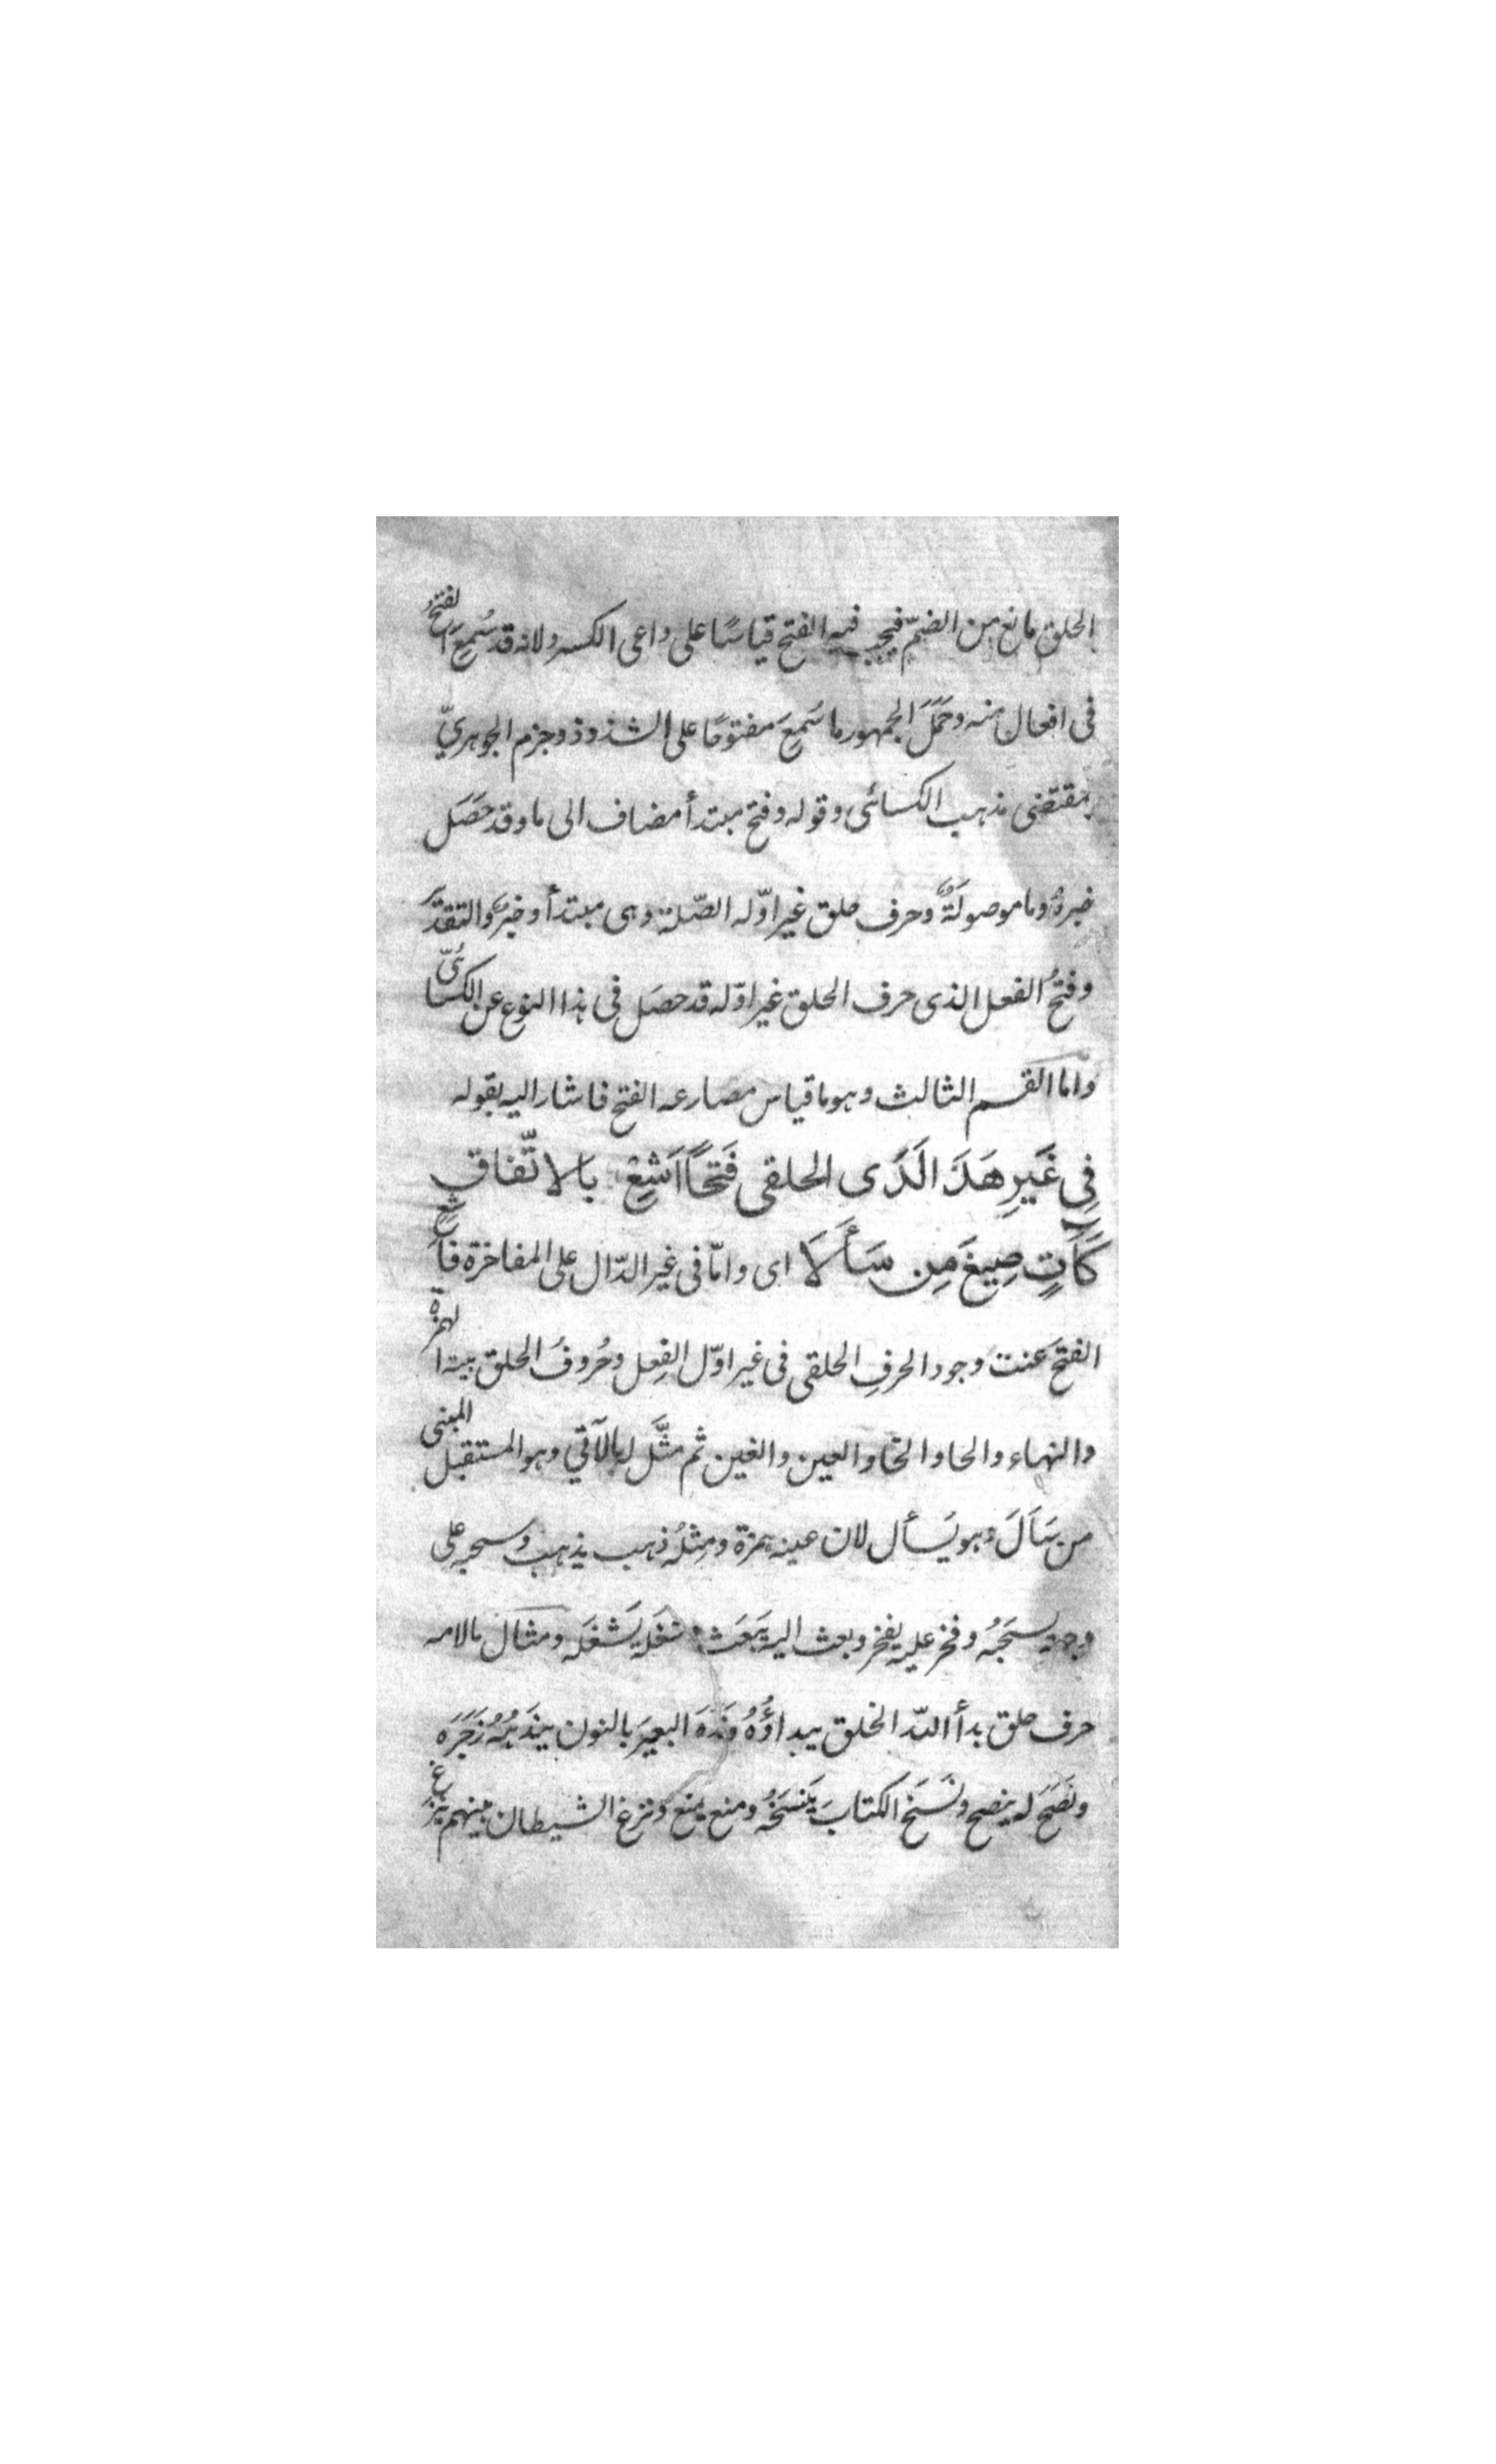 الحلق مانع من الضمّ فيجب فيه الفتح قياسًا على داعى الكسر ولانه قد سُمِعَ الفتحُ
فى افعال منه وحَمَلَ الجمهور ما سُمِعَ مفتوحًا على الشذوذ وجزم الجوهريّ
بمقتضى مذهب الكسائى وقوله وفتح مبتدأ مضاف الى ما وقد حَصَل
خبرهُ وما موصولَةٌ وحرف حلق غير اوّله الصّلة وهى مبتدأ وخبر والتقدير
وفتحُ الفعل الذى حرف الحلق غير اوّله قد حصَل فى هذا النوع عن الكسائىّ
وامّا القسم الثالث وهو ما قياس مضارعه الفتح فاشار اليه بقوله
فِى غَيرِ هَذَ الَدَى الحلقى فَتحًا اَشِعْ بالاتّفاق
كَآتٍ صِيغَ مِن سَأَلَا اى وامّا فى غير الدّال على المفاخرة فاَشِعْ
الفتحَ عند وجود الحرفِ الحلقى فى غير اوّل الفِعل وحُروفُ الحلق ستة الهمزة
والهاء والحا والخا والعين والغين ثم مثَّل له بالآتي وهو المستقبل المبنى
من سَأَلَ وهو يَسأل لان عينه همزة ومِثلُه ذهب يذهب وسحبه على
وجهه يسحَبُه وفخر عليه يفخر وبعث اليه يَبعَث شغله يَشغَله ومثال ما لامه
حرف حلق بدأ اللّه الخلق يبداؤُهُ ونَدَهَ البعيرَ بالنون يندَهُهُ زَجَرَه
ونَصَحَ له ينصح ونَسَخ الكتابَ يَنسَخُه ومنع يمنع ونزغ الشيطان بينهم ينزغ